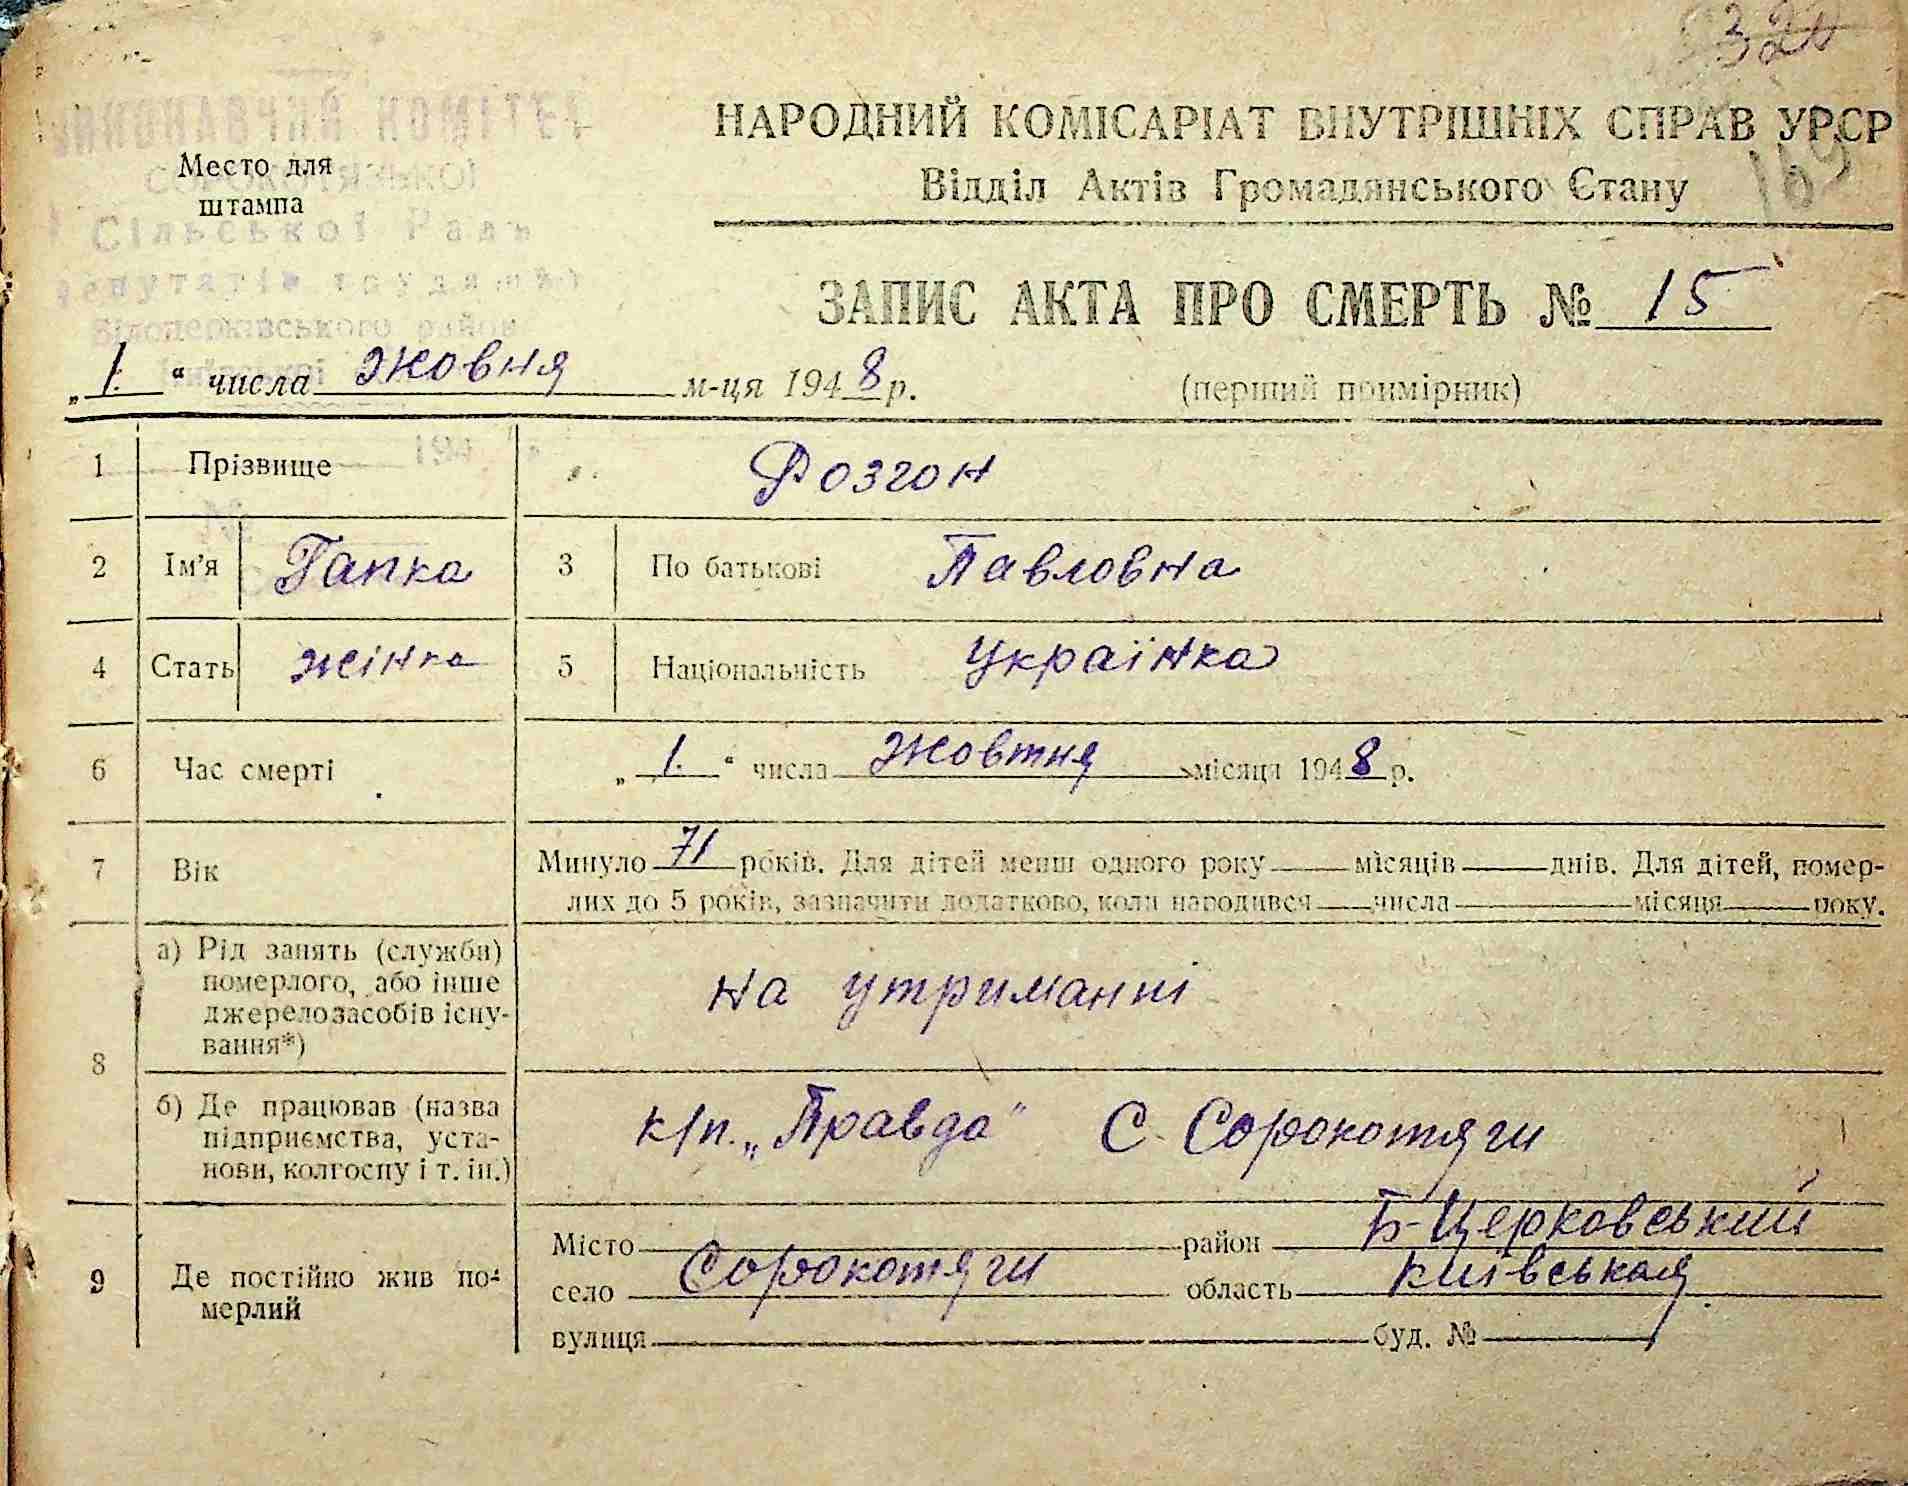 320
НАРОДНИЙ КОМІСАРІАТ ВНУТРІШНІХ СПРАВ УРСР
169
Відділ Актів Громадянського Стану
ВИКОНАВЧИЙ КОМІТЕТ
СОРОКОТЯЗЬКОЇ
Сільської Ради
депутатів трудящих
Білоцерківського району
Київської
194
№
Место для
штампа
ЗАПИС АКТА ПРО СМЕРТЬ № 15
„1.“ числа Жовня м-ця 1948 р. (перший примірник)
1 Прізвище Розгон
2 Ім'я Гапка 3 По батькові Павловна
4 Стать жінка 5 Національність Українка
6 Час смерті „1.“ числа Жовтня місяця 1948 р.
7 Вік Минуло 71 років. Для дітей менш одного року місяців днів. Для дітей, помер-
лих до 5 років, зазначити додатково, коли народився числа місяця року.
8 а) Рід занять (служби)
померлого, або інше
джерело засобів існу-
вання*)
на утриманні
б) Де працював (назва
підприємства, уста-
нови, колгоспу і т. ін.)
к/п. „Правда" С. Сорокотяги
9 Де постійно жив по-
мерлий
Місто район Б-Церковський
село Сорокотяги область Київськая
вулиця буд. №